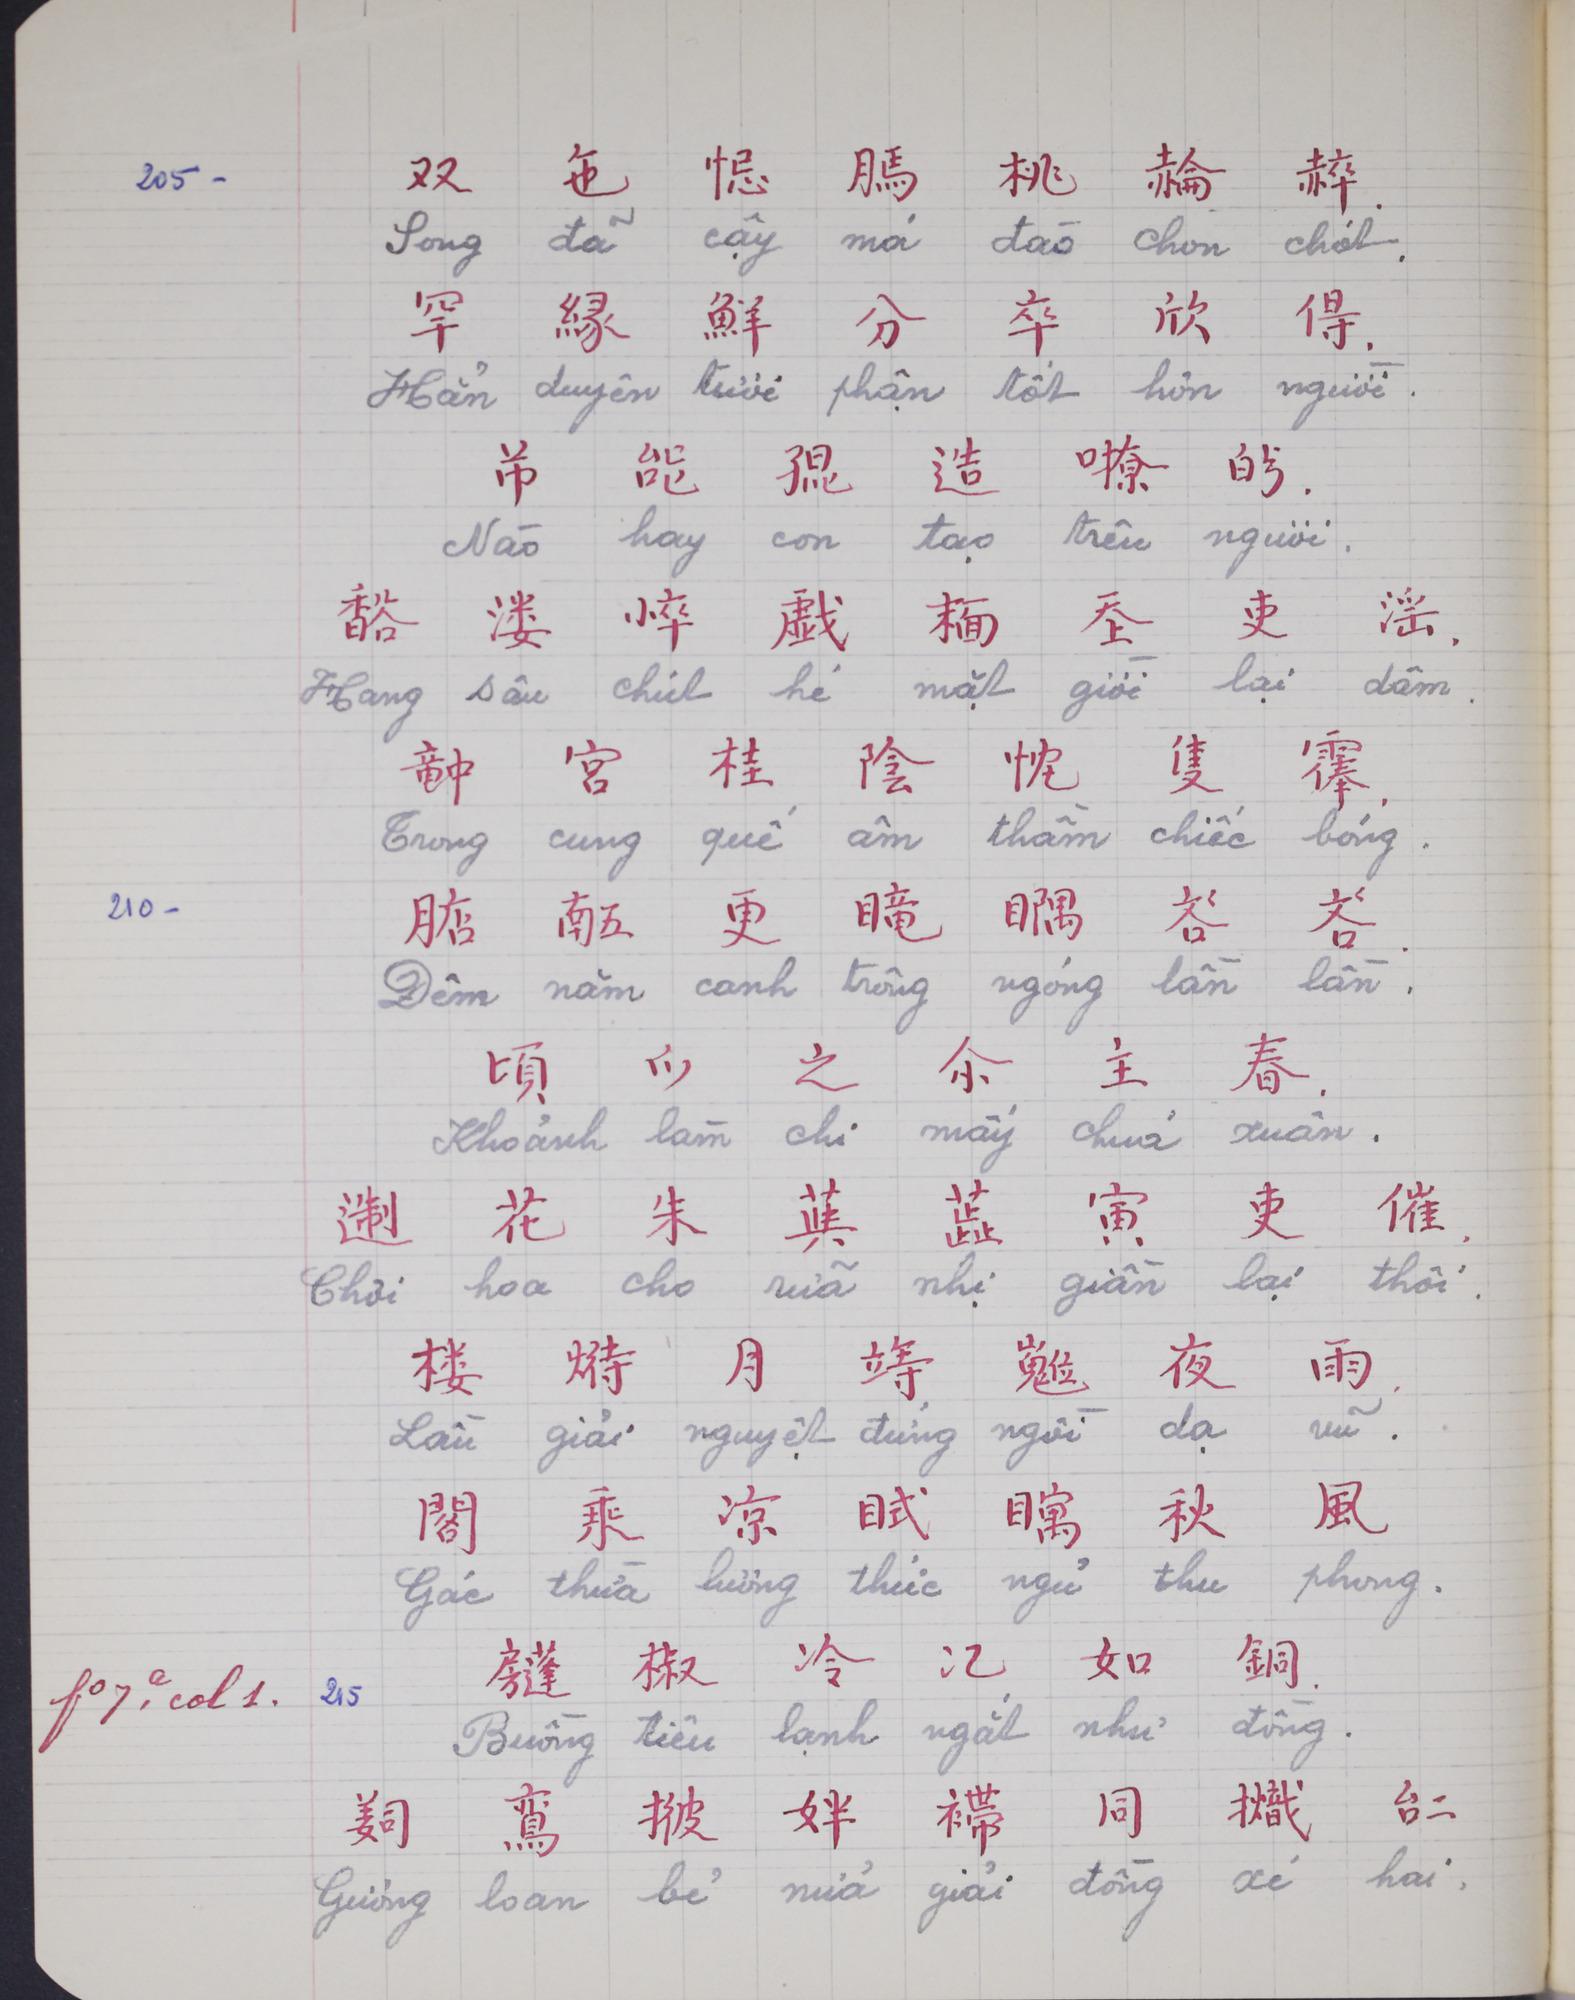 205 - 双 㐌 𢛨 𦟐 桃 𧹼 𧹻.
Song đã cậy má đào chon chót.
罕 緣 鮮 分 卒 欣 得.
Hẳn duyên tươi phận tốt hơn người.
芾 能 𡥵 造 嘹 㝵.
Nào hay con tạo trêu ngươi.
㴜 悴 戲 𩈘 𡗶 吏 淫.
Hang sâu chút hé mặt giời lại dâm.
𥪝 宮 桂 陰 忱 隻 䏾.
Trong cung quế âm thầm chiếc bóng.
210 - 𣎀 𠄼 更 𥊣 䁩 吝 吝.
Đêm năm canh trông ngóng lần lần.
頃 爫 之 尒 主 春.
Khoảnh làm chi mấy chúa xuân.
花 朱 蘂 寅 吏 催.
Chơi hoa cho rữa nhị giần lại thôi.
楼 月 䇏 𡾵 夜 雨.
Lầu giải nguyệt đứng ngồi dạ vũ.
閣 乘 凉 𥅞 𥋏 秋 風
Gác thừa lương thức ngủ thu phong.
fº 7.ª col 1. 215 椒 冷 冫乙 如 銅.
Buồng tiêu lạnh ngắt như đồng.
鸞 𢴾 姅 𧞊 同 𢰳 𠄩
Gương loan bẻ nửa giải đồng xé hai.